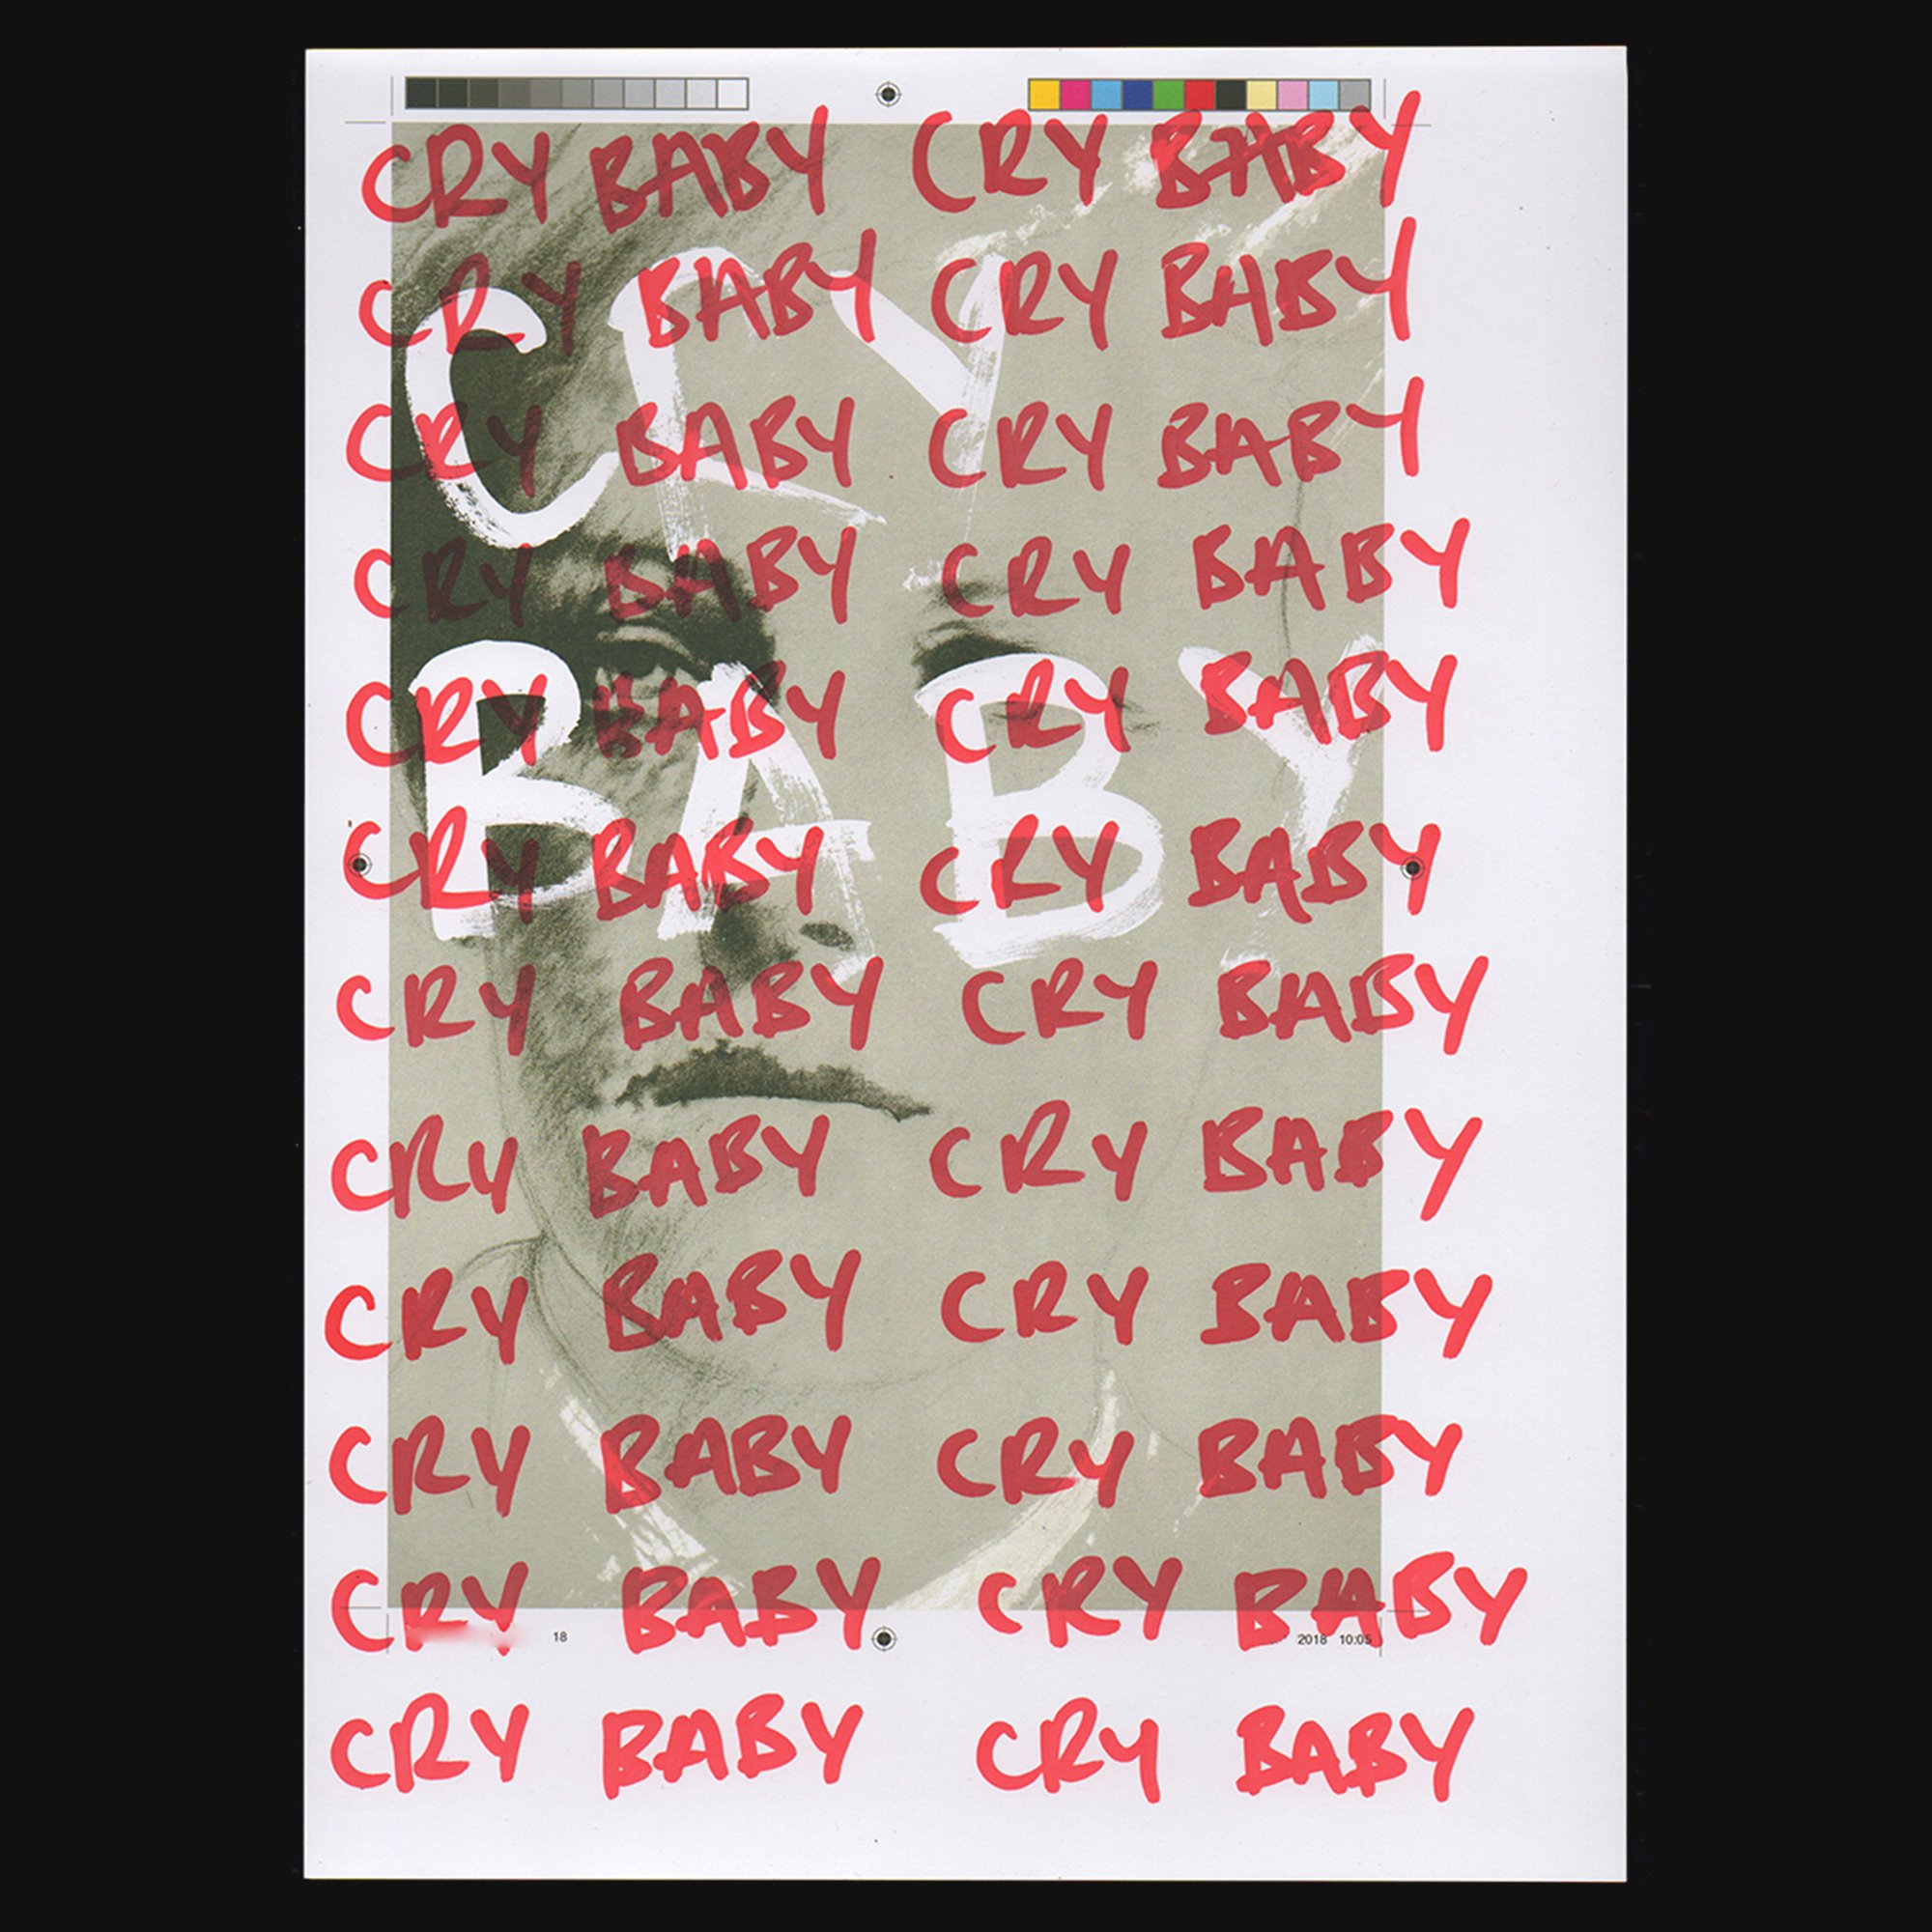 CRY BABY CRY BABY
CRY BABY CRY BABY
CRY
CRY BABY CRY BABY
CRY BABY CRY BABY
CRY BABY CRY BABY
BABY
CRY BABY CRY BABY
CRY BABY CRY BABY
CRY BABY CRY BABY
CRY BABY CRY BABY
CRY BABY CRY BABY
CRY BABY CRY BABY
18 2018 10:05
CRY BABY CRY BABY